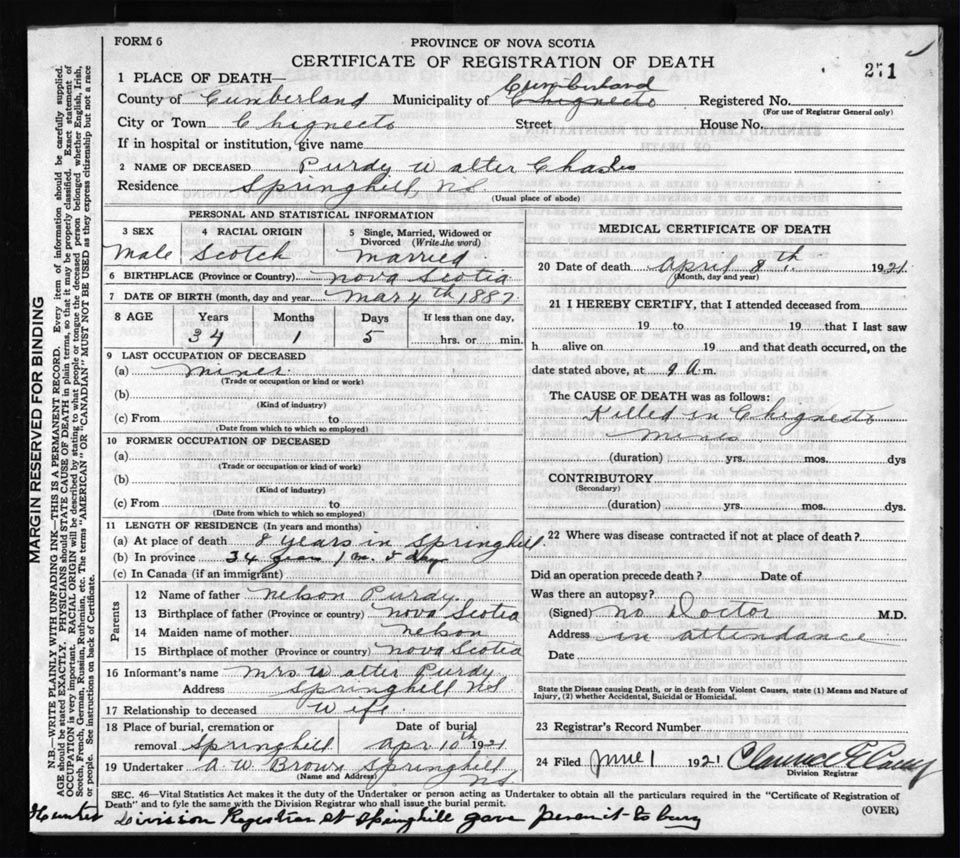 FORM 6
PROVINCE OF NOVA SCOTIA
CERTIFICATE OF REGISTRATION OF DEATH
271
1 PLACE OF DEATH—
Cumberland
County of Cumberland Municipality of Chignecto Registered No.
(For use of Registrar General only)
City or Town Chignecto Street House No.
If in hospital or institution, give name
2 NAME OF DECEASED Purdy Walter Chas
Residence Springhill, N.S.
(Usual place of abode)
PERSONAL AND STATISTICAL INFORMATION
3 SEX 4 RACIAL ORIGIN 5 Single, Married, Widowed or Divorced (Write the word)
Male Scotch Married
6 BIRTHPLACE (Province or Country) Nova Scotia
7 DATE OF BIRTH (month, day and year) Mar 4th 1887
8 AGE Years Months Days If less than one day,
34 1 5 hrs. or min.
9 LAST OCCUPATION OF DECEASED
(a) Miner
(Trade or occupation or kind or work)
(b)
(Kind of industry)
(c) From to
(Date from which to which so employed)
10 FORMER OCCUPATION OF DECEASED
(a)
(Trade or occupation or kind of work)
(b)
(Kind of industry)
(c) From to
(Date from which to which so employed)
11 LENGTH OF RESIDENCE (In years and months)
(a) At place of death 8 years in Springhill
(b) In province 34 years 1 m. 5 days
(c) In Canada (if an immigrant)
Parents
12 Name of father Nelson Purdy
13 Birthplace of father (Province or country) Nova Scotia
14 Maiden name of mother. Nelson
15 Birthplace of mother (Province or country) Nova Scotia
16 Informant's name Mrs Walter Purdy
Address Springhill NS
17 Relationship to deceased Wife
18 Place of burial, cremation or Date of burial
removal Springhill Apr 10th 1921
19 Undertaker A W Brown Springhill
(Name and Address) NS
MEDICAL CERTIFICATE OF DEATH
20 Date of death April 8th. 1921
(Month, day and year)
21 I HEREBY CERTIFY, that I attended deceased from
19 to 19 that I last saw
h alive on 19 and that death occurred, on the
date stated above, at 9 A m.
The CAUSE OF DEATH was as follows:
Killed in Chignecto
Mines
(duration) yrs. mos. dys
CONTRIBUTORY
(Secondary)
(duration) yrs. mos. dys.
22 Where was disease contracted if not at place of death?
Did an operation precede death? Date of
Was there an autopsy?
(Signed) No Doctor M.D.
Address in attendance
Date
State the Disease causing Death, or in death from Violent Causes, state (1) Means and Nature of
Injury, (2) whether Accidental, Suicidal or Homicidal.
23 Registrar's Record Number
24 Filed June 1 1921 Clarence
Division Registrar
SEC. 46—Vital Statistics Act makes it the duty of the Undertaker or person acting as Undertaker to obtain all the particulars required in the "Certificate of Registration of
Death" and to fyle the same with the Division Registrar who shall issue the burial permit.
(OVER)
Hunter Division Registrar at Springhill gave permit to bury
MARGIN RESERVED FOR BINDING
N.B.—WRITE PLAINLY WITH UNFADING INK—THIS IS A PERMANENT RECORD. Every item of information should be carefully supplied.
AGE should be stated EXACTLY. PHYSICIANS should STATE CAUSE OF DEATH in plain terms, so that it may be properly classified. Exact statement of
OCCUPATION is very important. RACIAL ORIGIN will be described by stating to what people or tongue the deceased person belonged whether English, Irish,
Scotch, French, German, Russian, Ruthenian, etc. The terms "AMERICAN" OR "CANADIAN" MUST NOT BE USED as they express citizenship but not a race
or people. See instructions on back of Certificate.